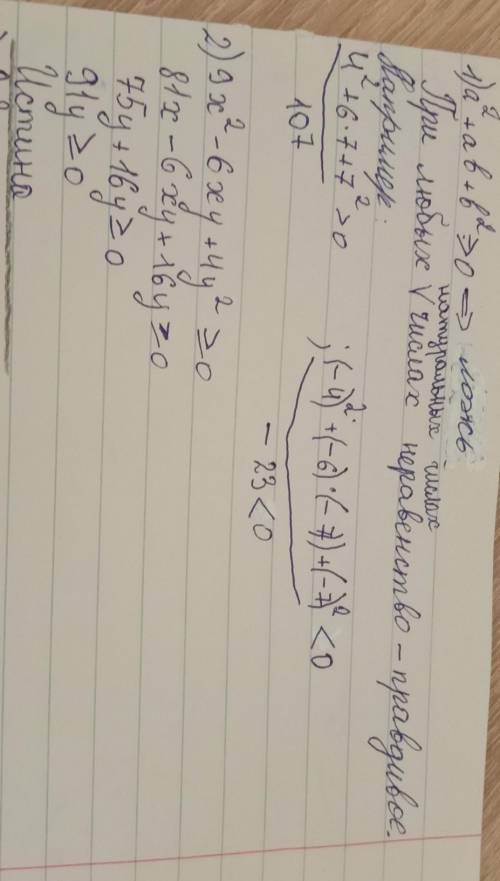 1) a² + ab + b² ≥ 0 ⇒ ложь
натуральных числах
При любых √ числах неравенство – правдивое.
Например:
4² + 6·7 + 7² > 0 ; (-4)² + (-6)·(-7) + (-7)² < 0
107
- 23 < 0
2) 9x² - 6xy + 4y² ≥ 0
81x - 6xy + 16y ≥ 0
75y + 16y ≥ 0
91y ≥ 0
Истина